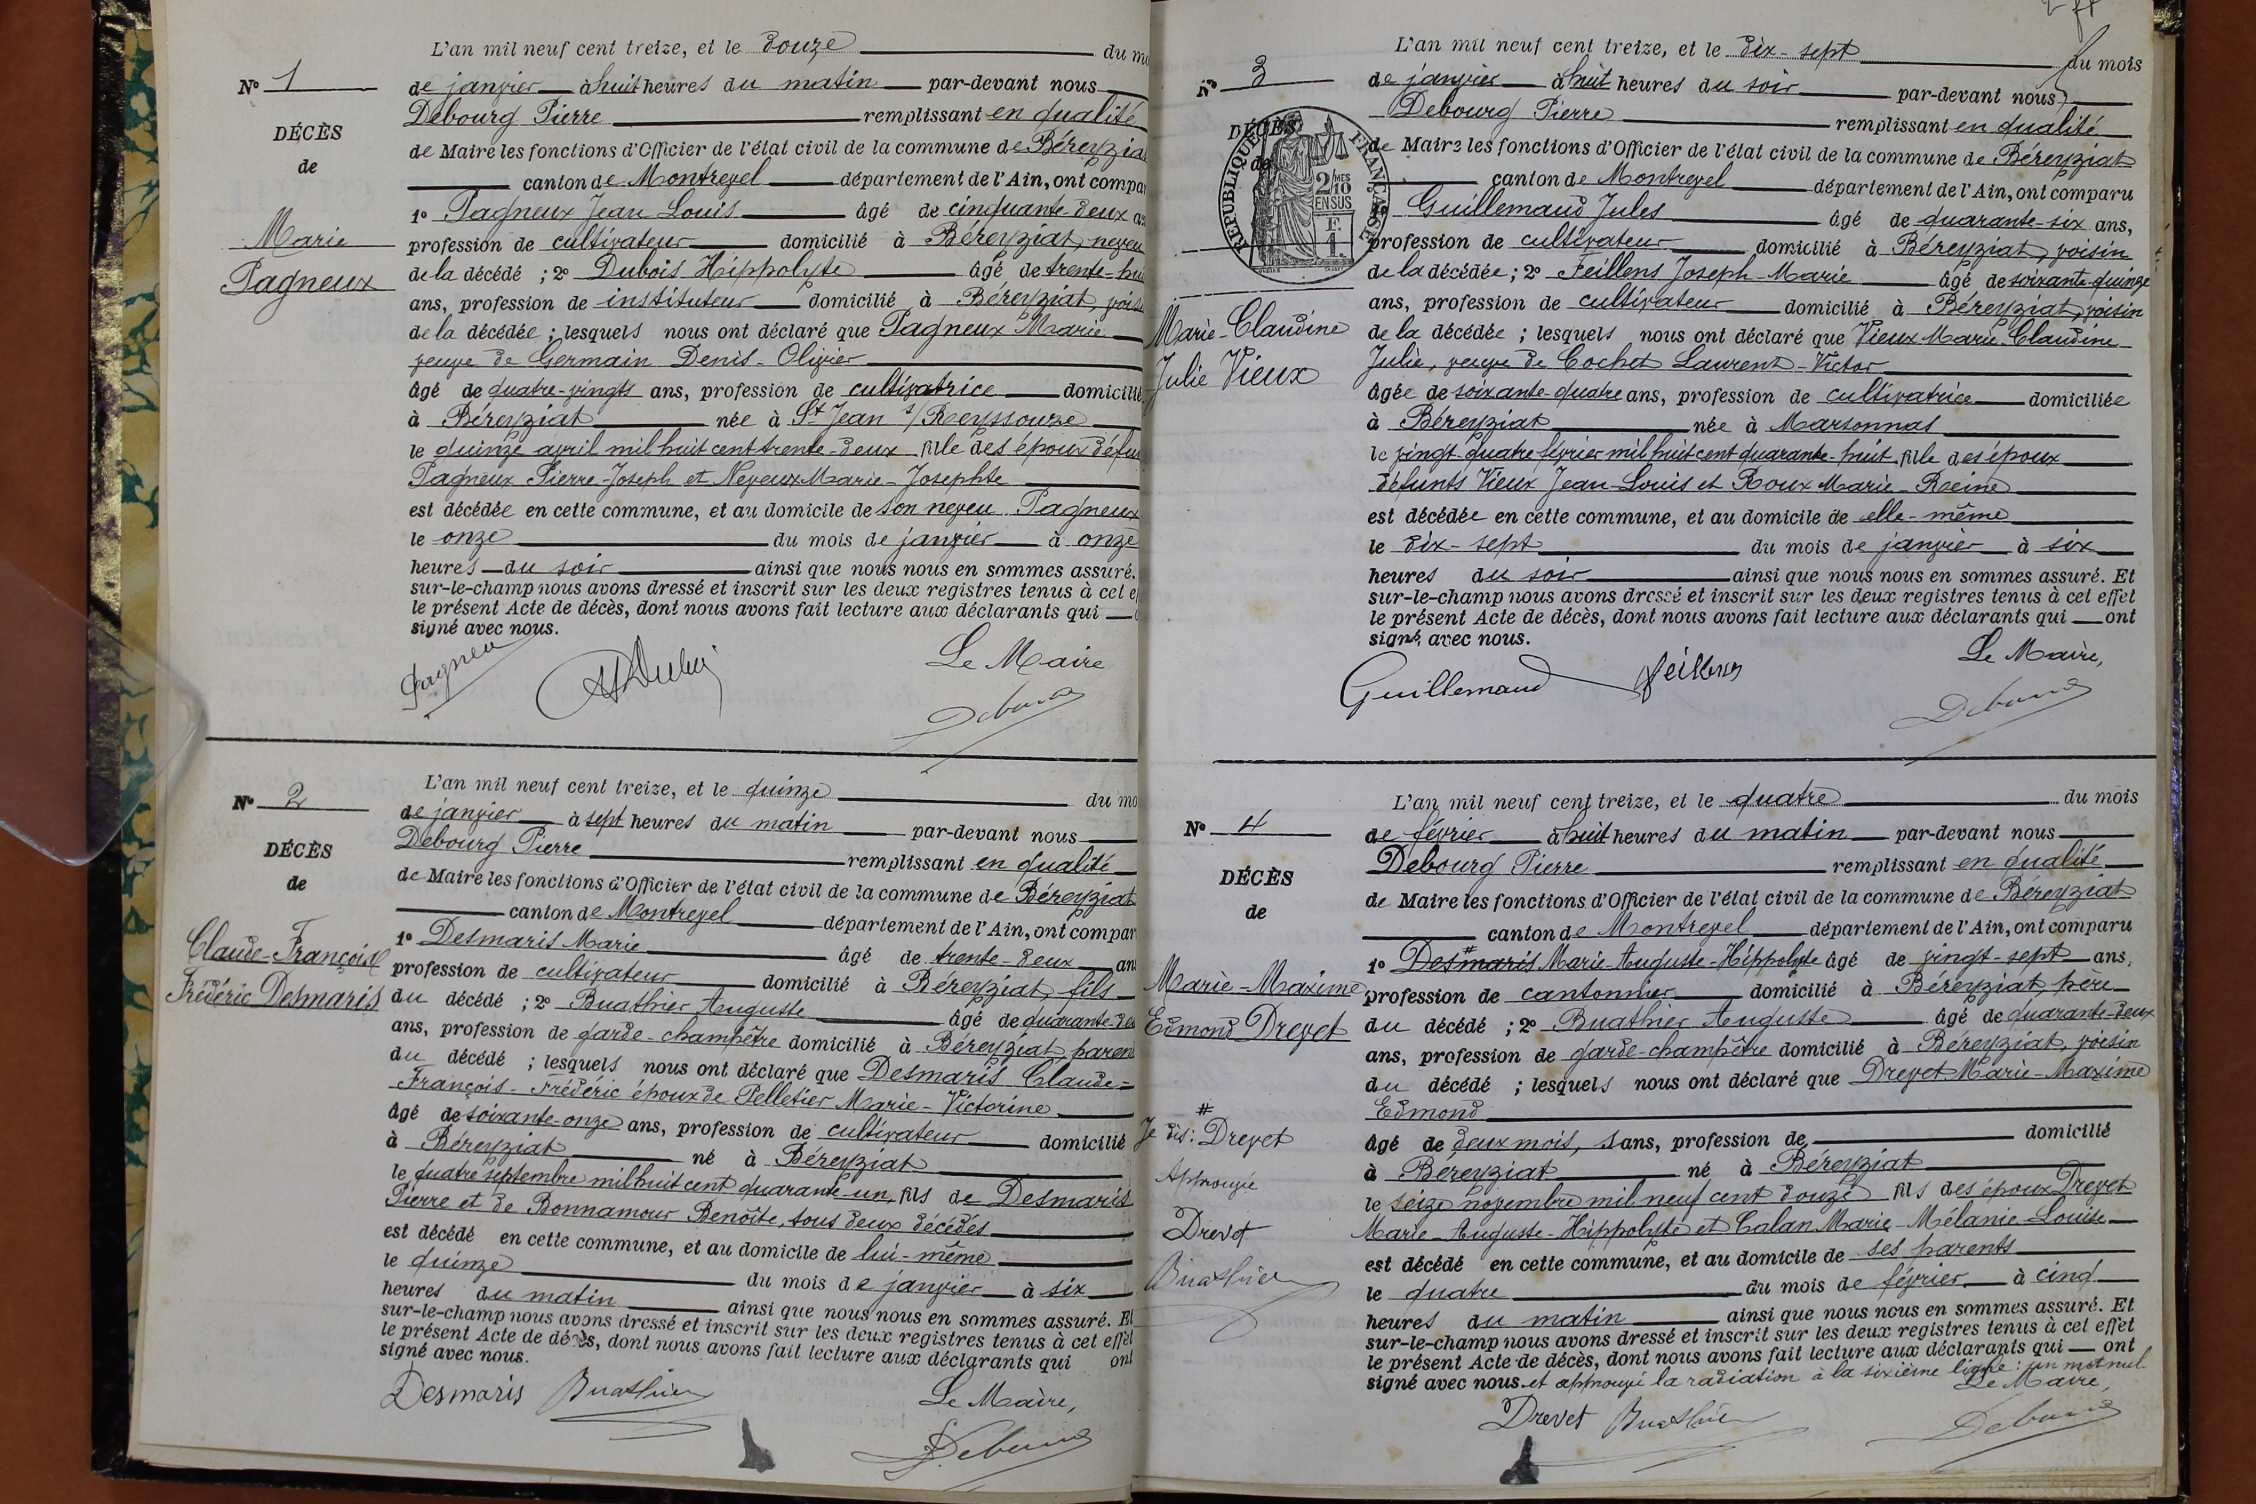 L'an mil neuf cent treize, et le douze du m
N° 1
de janvier à huit heures du matin par-devant nous
Debourg Pierre remplissant en qualité
DÉCÈS
de Maire les fonctions d'Officier de l'état civil de la commune de Béreyzia
de
canton de Montrevel département de l'Ain, ont compar
1° Pagneux Jean Louis âgé de cinquante-deux an
Marie
profession de cultivateur domicilié à Béreyziat, neveu
Pagneux
de la décédé ; 2° Dubois Hippolyte âgé de trente-hui
ans, profession de instituteur domicilié à Béreyziat, voisi
de la décédée ; lesquels nous ont déclaré que Pagneux Marie
veuve de Germain Denis-Olivier
âgé de quatre-vingts ans, profession de cultivatrice domicilié
à Béreyziat née à St Jean s/Reyssouze
le quinze avril mil huit cent trente-deux fille des époux défun
Pagneux Pierre-Joseph et Neveux Marie-Josephte
est décédée en cette commune, et au domicile de son neveu Pagneux
le onze du mois de janvier à onze
heures du soir ainsi que nous nous en sommes assuré.
sur-le-champ nous avons dressé et inscrit sur les deux registres tenus à cet e
le présent Acte de décès, dont nous avons fait lecture aux déclarants qui
signé avec nous.
Le Maire
Pagneu
HDubois
Debourg
L'an mil neuf cent treize, et le quinze du mo
N° 2
de janvier à sept heures du matin par-devant nous
Debourg Pierre remplissant en qualité
DÉCÈS
de Maire les fonctions d'Officier de l'état civil de la commune de Béreyziat
de
canton de Montrevel département de l'Ain, ont compar
1° Desmaris Marie âgé de trente-deux ans
Claude-François
profession de cultivateur domicilié à Béreyziat, fils
Frédéric Desmaris
du décédé ; 2° Buathier Auguste âgé de quarante-deu
ans, profession de garde-champêtre domicilié à Béreyziat, paren
du décédé ; lesquels nous ont déclaré que Desmaris Claude-
François-Frédéric époux de Pelletier Marie-Victorine
âgé de soixante-onze ans, profession de cultivateur domicilié
à Béreyziat né à Béreyziat
le quatre septembre mil huit cent quarante-un, fils de Desmaris
Pierre et de Bonnamour Benoîte, tous deux décédés
est décédé en cette commune, et au domicile de lui-même
le quinze du mois de janvier à six
heures du matin ainsi que nous nous en sommes assuré. Et
sur-le-champ nous avons dressé et inscrit sur les deux registres tenus à cet effet
le présent Acte de décès, dont nous avons fait lecture aux déclarants qui ont
signé avec nous.
Desmaris Buathier Le Maire,
Debourg
L'an mil neuf cent treize, et le dix-sept du mois
N° 3
de janvier à huit heures du soir par-devant nous
Debourg Pierre remplissant en qualité
DÉCÈS
de Maire les fonctions d'Officier de l'état civil de la commune de Béreyziat
de
RÉPUBLIQUE FRANÇAISE
2/10MES
EN SUS
F.
1.
canton de Montrevel département de l'Ain, ont comparu
1° Guillemaud Jules âgé de quarante-six ans,
profession de cultivateur domicilié à Béreyziat, voisin
de la décédée ; 2° Feillens Joseph-Marie âgé de soixante-quinze
ans, profession de cultivateur domicilié à Béreyziat, voisin
Marie-Claudine
de la décédée ; lesquels nous ont déclaré que Vieux Marie-Claudine
Julie Vieux
Julie, veuve de Cochet Laurent-Victor
âgée de soixante-quatre ans, profession de cultivatrice domiciliée
à Béreyziat née à Marsonnas
le vingt-quatre février mil huit cent quarante-huit, fille des époux
défunts Vieux Jean-Louis et Roux Marie-Reine
est décédée en cette commune, et au domicile de elle-même
le dix-sept du mois de janvier à six
heures du soir ainsi que nous nous en sommes assuré. Et
sur-le-champ nous avons dressé et inscrit sur les deux registres tenus à cet effet
le présent Acte de décès, dont nous avons fait lecture aux déclarants qui ont
signé avec nous.
Le Maire,
Guillemaud Feillens
Debourg
L'an mil neuf cent treize, et le quatre du mois
N° 4
de février à huit heures du matin par-devant nous
Debourg Pierre remplissant en qualité
DÉCÈS
de Maire les fonctions d'Officier de l'état civil de la commune de Béreyziat
de
canton de Montrevel département de l'Ain, ont comparu
1° Desmaris # Marie-Auguste-Hippolyte âgé de vingt-sept ans,
Marie-Maxime
profession de cantonnier domicilié à Béreyziat, père
Edmond Drevet
du décédé ; 2° Buathier Auguste âgé de quarante-deux
ans, profession de garde-champêtre domicilié à Béreyziat, voisin
du décédé ; lesquels nous ont déclaré que Drevet Marie-Maxime
Edmond
#
Je dis : Drevet
Approuvé
Drevet
Buathier
âgé de deux mois, sans, profession de domicilié
à Béreyziat né à Béreyziat
le seize novembre mil neuf cent douze fils des époux Drevet
Marie-Auguste-Hippolyte et Calan Marie-Mélanie-Louise
est décédé en cette commune, et au domicile de ses parents
le quatre du mois de février à cinq
heures du matin ainsi que nous nous en sommes assuré. Et
sur-le-champ nous avons dressé et inscrit sur les deux registres tenus à cet effet
le présent Acte de décès, dont nous avons fait lecture aux déclarants qui ont
signé avec nous et approuvé la radiation à la sixième ligne : un mot nul.
Le Maire,
Drevet Buathier
Debourg